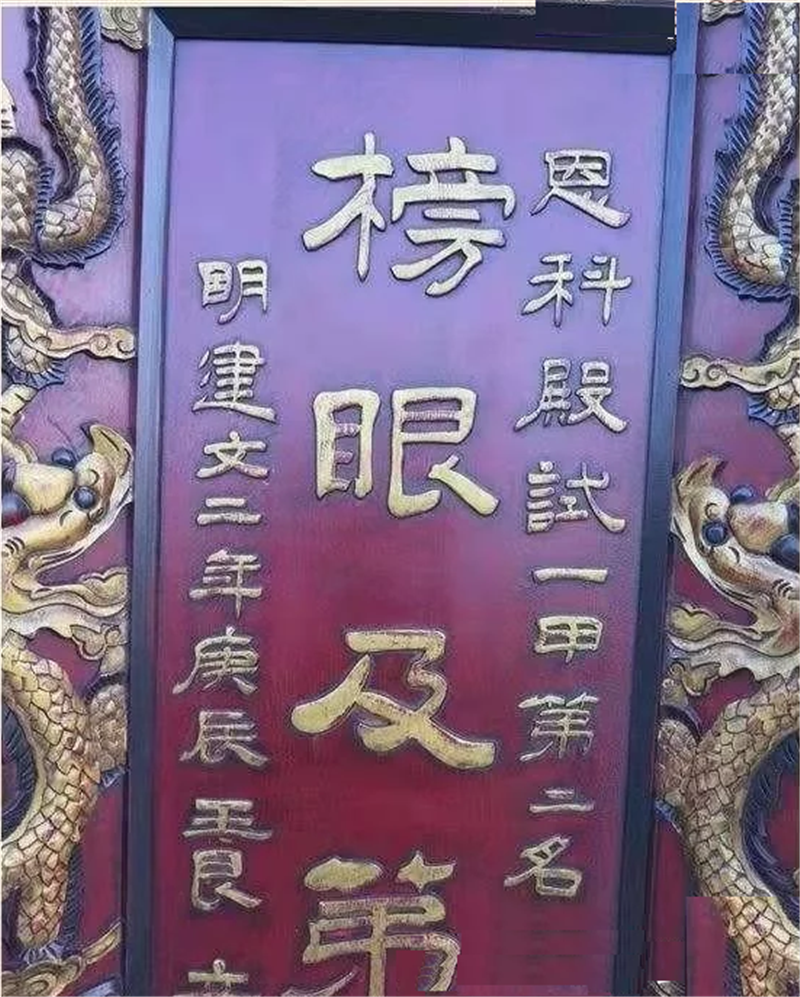 恩科殿試一甲第二名
榜眼及第
明建文二年庚辰 王艮